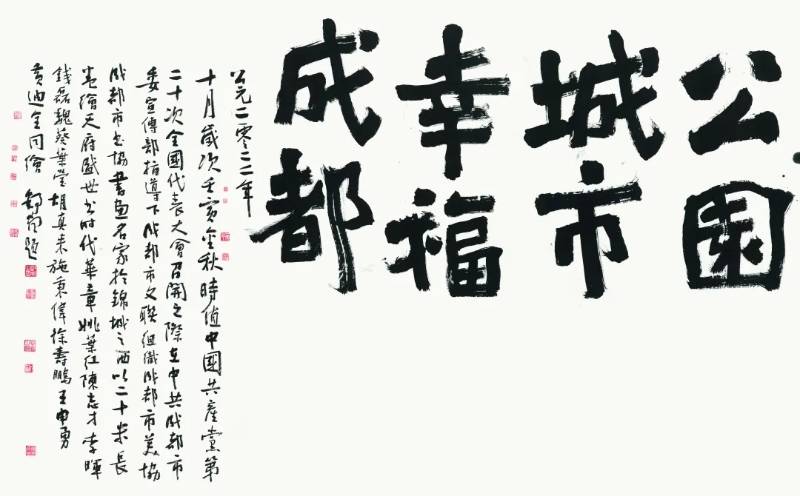 公園
城市
幸福
成都
公元二零二二年
十月歲次壬寅金秋時值中國共產黨第
二十次全國代表大會召開之際在中共成都市
委宣傳部指導下成都市文聯組織成都市美協
成都市书協書畫名家於錦城之西以二十米長
卷繪天府盛世书时代華章姚葉红陳志才李暉
錢磊魏葵葉瑩胡真来施秉偉徐壽鵬王申勇
黄迪全同繪 舒炯題